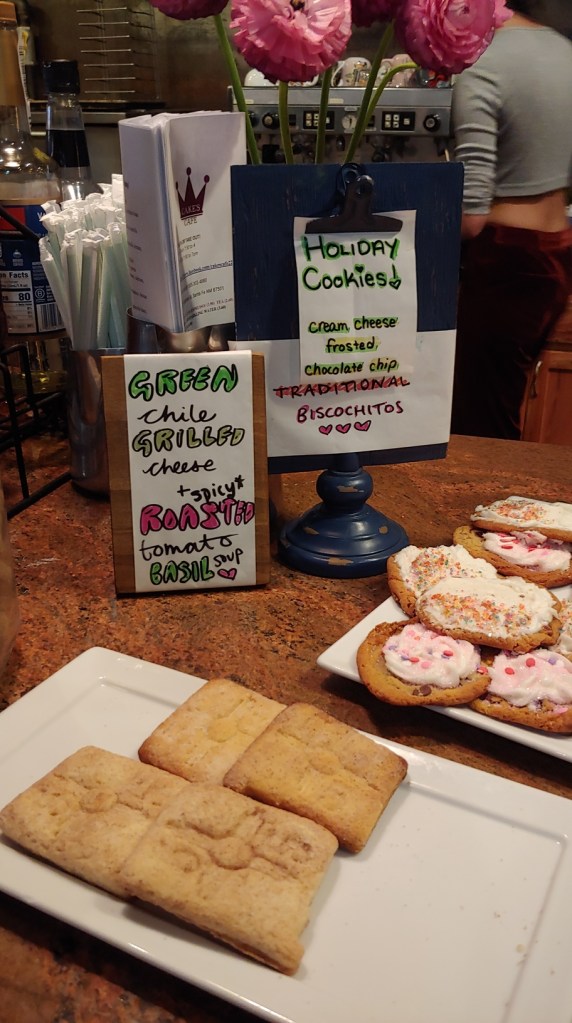 CAKE'S
CAFE
HOLIDAY
Cookies!
cream cheese
frosted,
chocolate chip
TRADITIONAL
BISCOCHITOS
GREEN
chile
GRILLED
cheese
+spicy*
ROASTED
tomato
BASIL soup
Facts
80